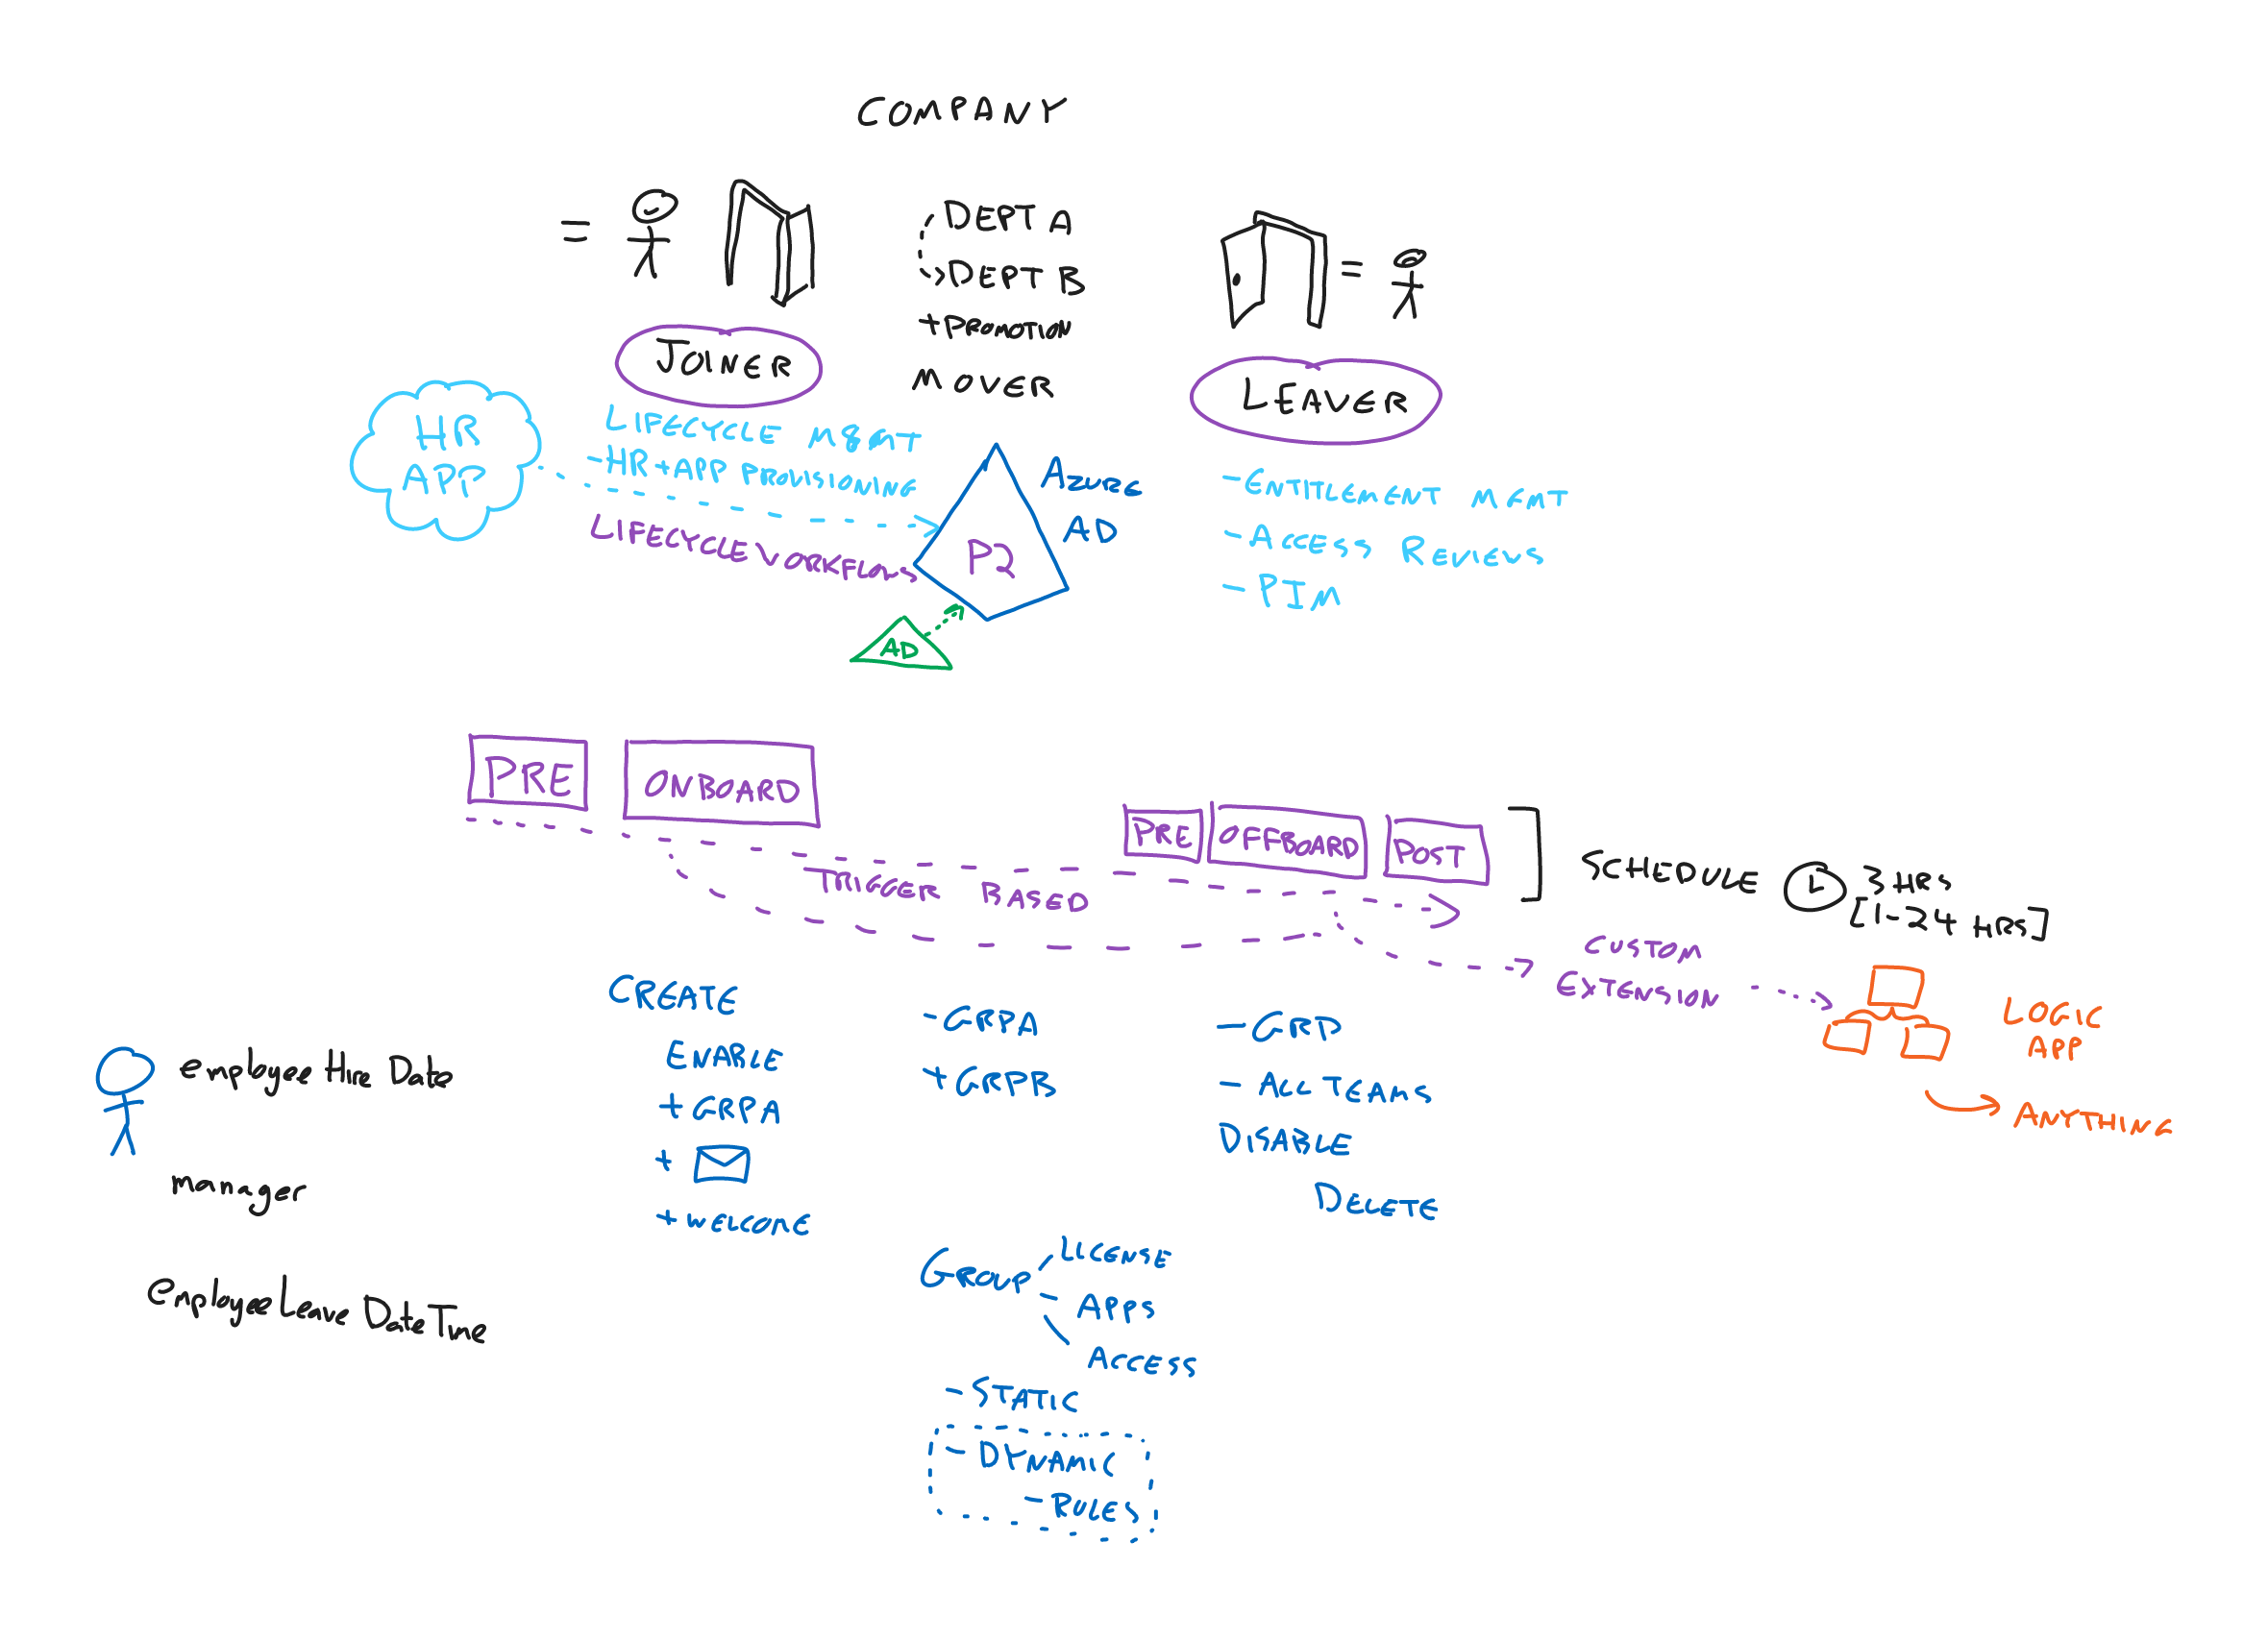 COMPANY
DEPT A
DEPT B
+PROMOTION
MOVER
JOINER
LEAVER
HR
APP
LIFECYCLE MGMT
-HR+APP PROVISIONING
LIFECYCLE WORKFLOWS
AZURE
AD
P2
AD
-ENTITLEMENT MGMT
-ACCESS REVIEWS
-PIM
PRE
ONBOARD
PRE
OFFBOARD
POST
TRIGGER BASED
SCHEDULE
3 HRS
[1-24 HRS]
CUSTOM
EXTENSION
LOGIC
APP
ANYTHING
employeeHireDate
manager
employeeLeaveDateTime
CREATE
ENABLE
+GRPA
+
+WELCOME
-GRPA
+GRPB
-GRP
-ALL TEAMS
DISABLE
DELETE
GROUP
LICENSE
-APPS
ACCESS
-STATIC
-DYNAMIC
-RULES